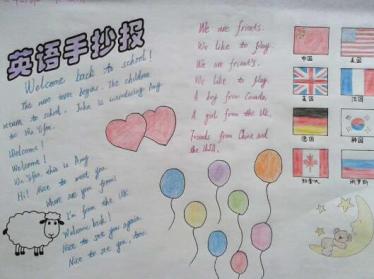 英语手抄报
Welcome back to school!
The new term begins. The children
return to school. John is
Welcome!
Welcome!
this is Amy.
Hi! Nice to meet you.
Where are you from?
I'm from the UK.
Welcome, back!
Nice to see you again.
Nice to see you, too.
We are friends.
We like to play.
We are friends.
We like to play.
A boy from Canada,
A girl from the UK,
Friends from China and
the USA.
中国
美国
英国
法国
德国
韩国
加拿大
俄罗斯